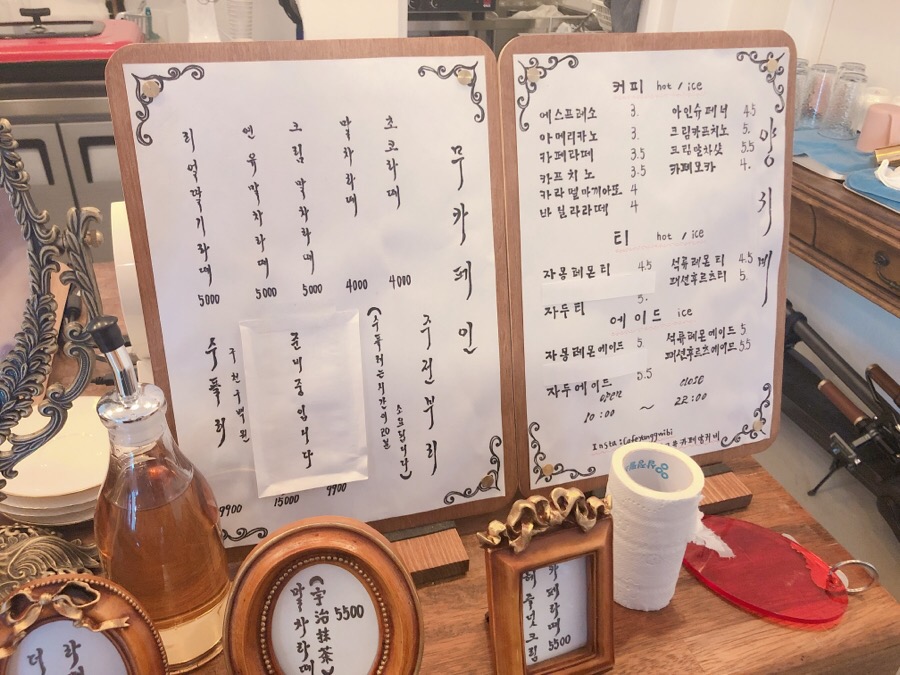 무카페인
초코라떼 4000
말차라떼 4000
크림말차라떼 5000
연유말차라떼 5000
리얼딸기라떼 5000
주전부리
(수플레는 시간이 20분
소요됩니다)
9900
준비중입니다
15000
구천구백원
수플레
9900
양귀비
커피 hot / ice
에스프레소 3.
아메리카노 3.
카페라떼 3.5
카프치노 3.5
카라멜마끼아또 4
바닐라라떼 4
아인슈페너 4.5
크림카프치노 5.
크림말차샷 5.5
카페모카 4.
티 hot / ice
자몽레몬티 4.5
자두티 5.
석류레몬티 4.5
패션후르츠티 5.
에이드 ice
자몽레몬에이드 5.
자두에이드 5.5
석류레몬에이드 5
패션후르츠에이드 5.5
open close
10:00 ~ 22:00
말차라떼
(宇治抹茶)
5500
카페라떼
5500